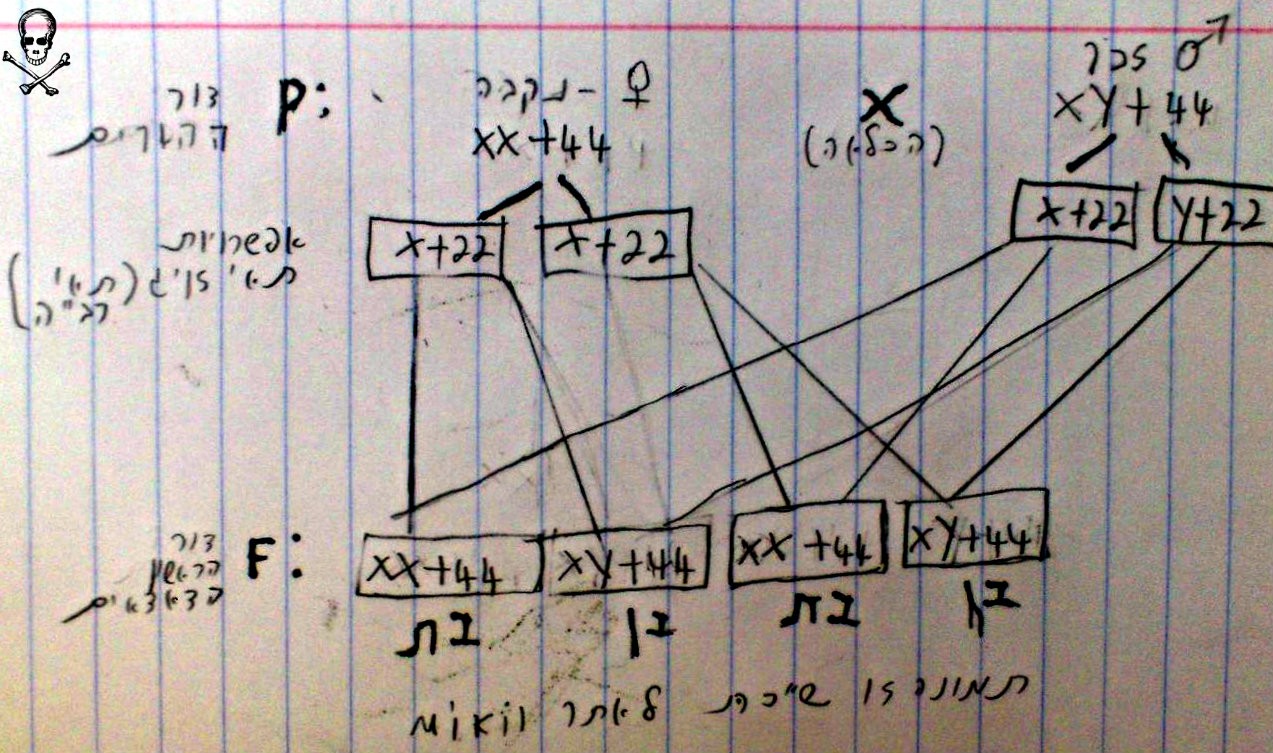 דור ההורים P: נקבה - ♀ X זכר ♂
XX+44 (הכלאה) XY+44
אפשרויות X+22 X+22 X+22 Y+22
תאי זויג (תאי רביה)
דור הראשון הצאצאים F: XX+44 XY+44 XX+44 XY+44
בת בן בת בן
תמונה זו שייכת לאתר